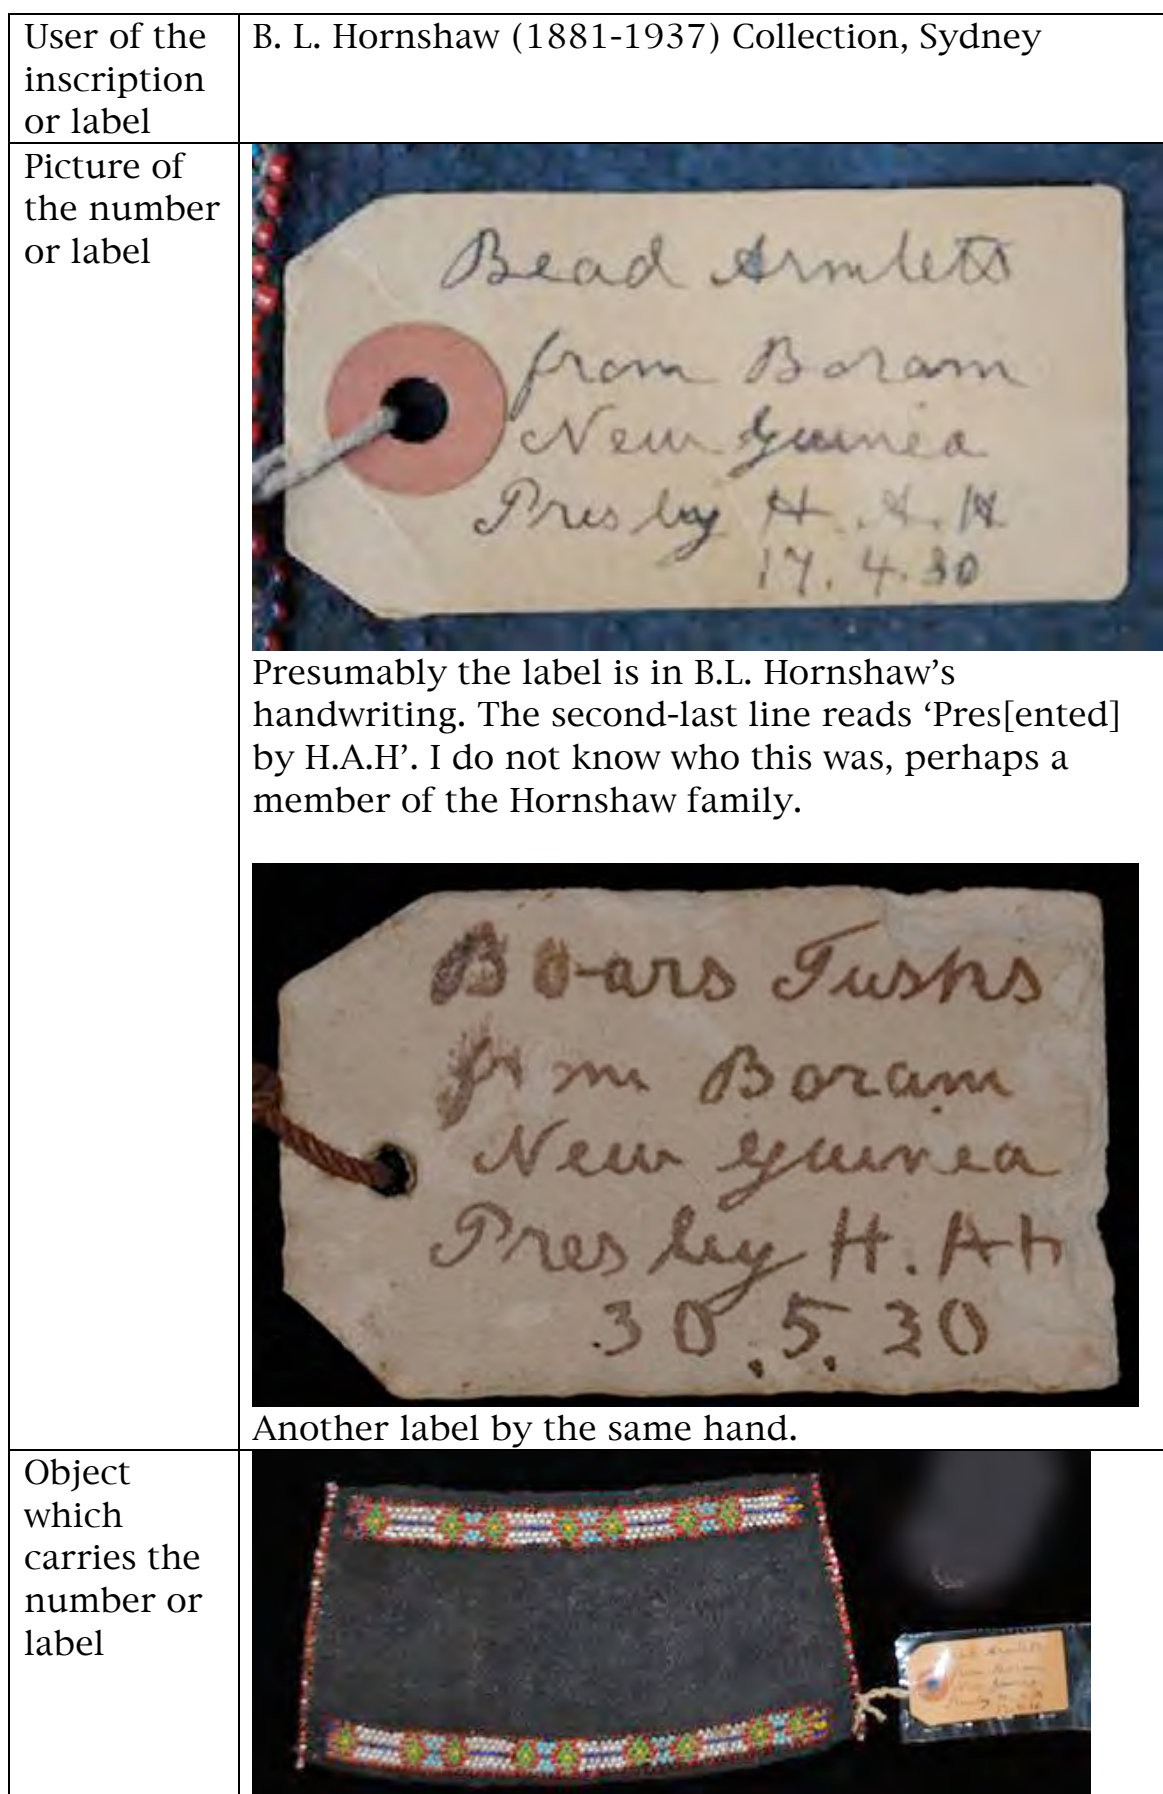 User of the
inscription
or label
B. L. Hornshaw (1881-1937) Collection, Sydney
Picture of
the number
or label
Bead Armlets
from Boram
New Guinea
Pres by H. A. H
17. 4. 30
Presumably the label is in B.L. Hornshaw’s
handwriting. The second-last line reads ‘Pres[ented]
by H.A.H’. I do not know who this was, perhaps a
member of the Hornshaw family.
Boars Tusks
from Boram
New Guinea
Pres by H. A H
30.5.30
Another label by the same hand.
Object
which
carries the
number or
label